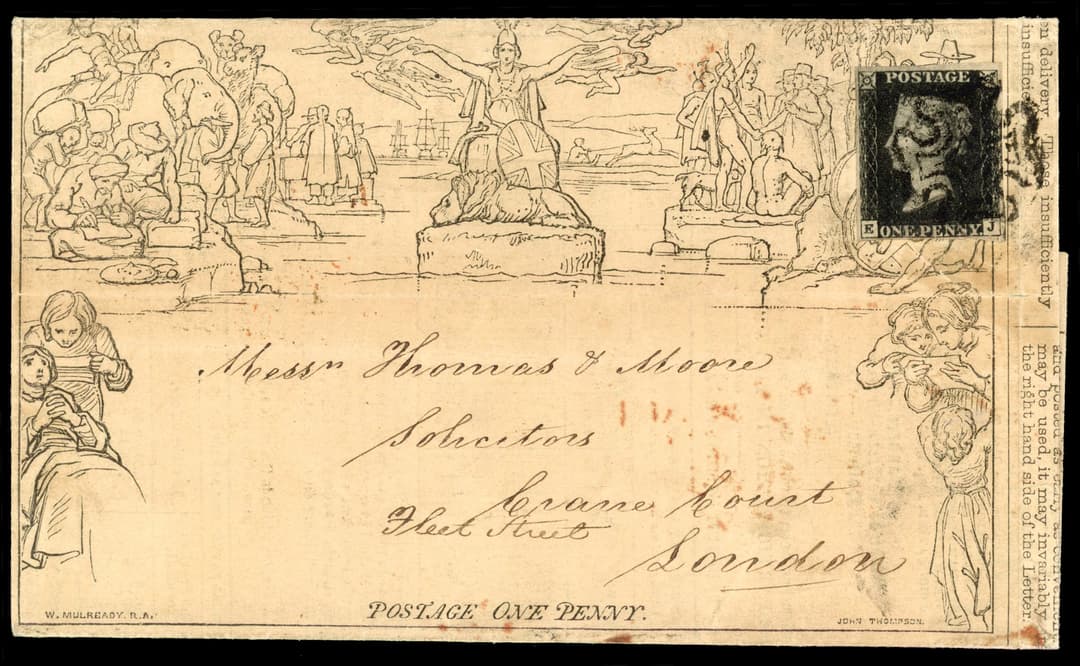 POSTAGE
E ONE PENNY J
Messrs Thomas & Moore
Solicitors
Crane Court
Fleet Street
London
POSTAGE ONE PENNY.
W. MULREADY. R.A.
JOHN THOMPSON.
on delivery. These insufficiently
insufficie
and posted as early as convenient.
may be used, it may invariably
the right hand side of the Letter.